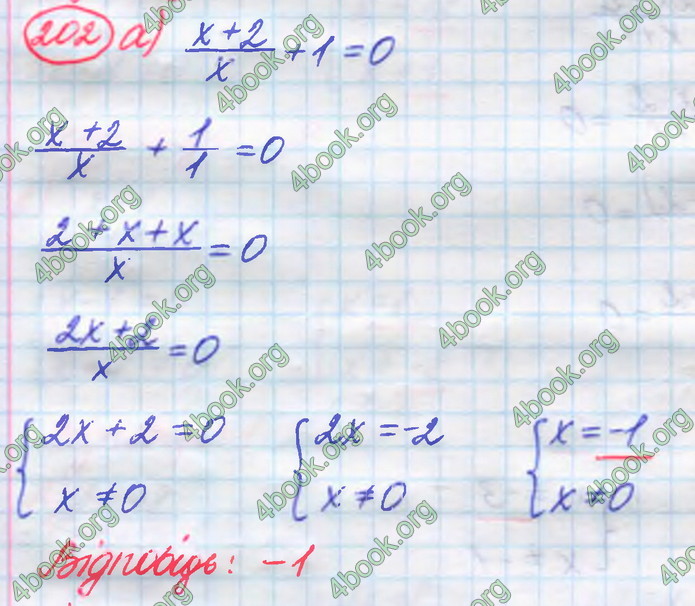 202 а) (x+2)/x + 1 = 0
(x+2)/x + 1/1 = 0
(2+x+x)/x = 0
(2x+2)/x = 0
{ 2x+2=0 { 2x=-2 { x=-1
x≠0 x≠0 x≠0
Відповідь: -1
4book.org